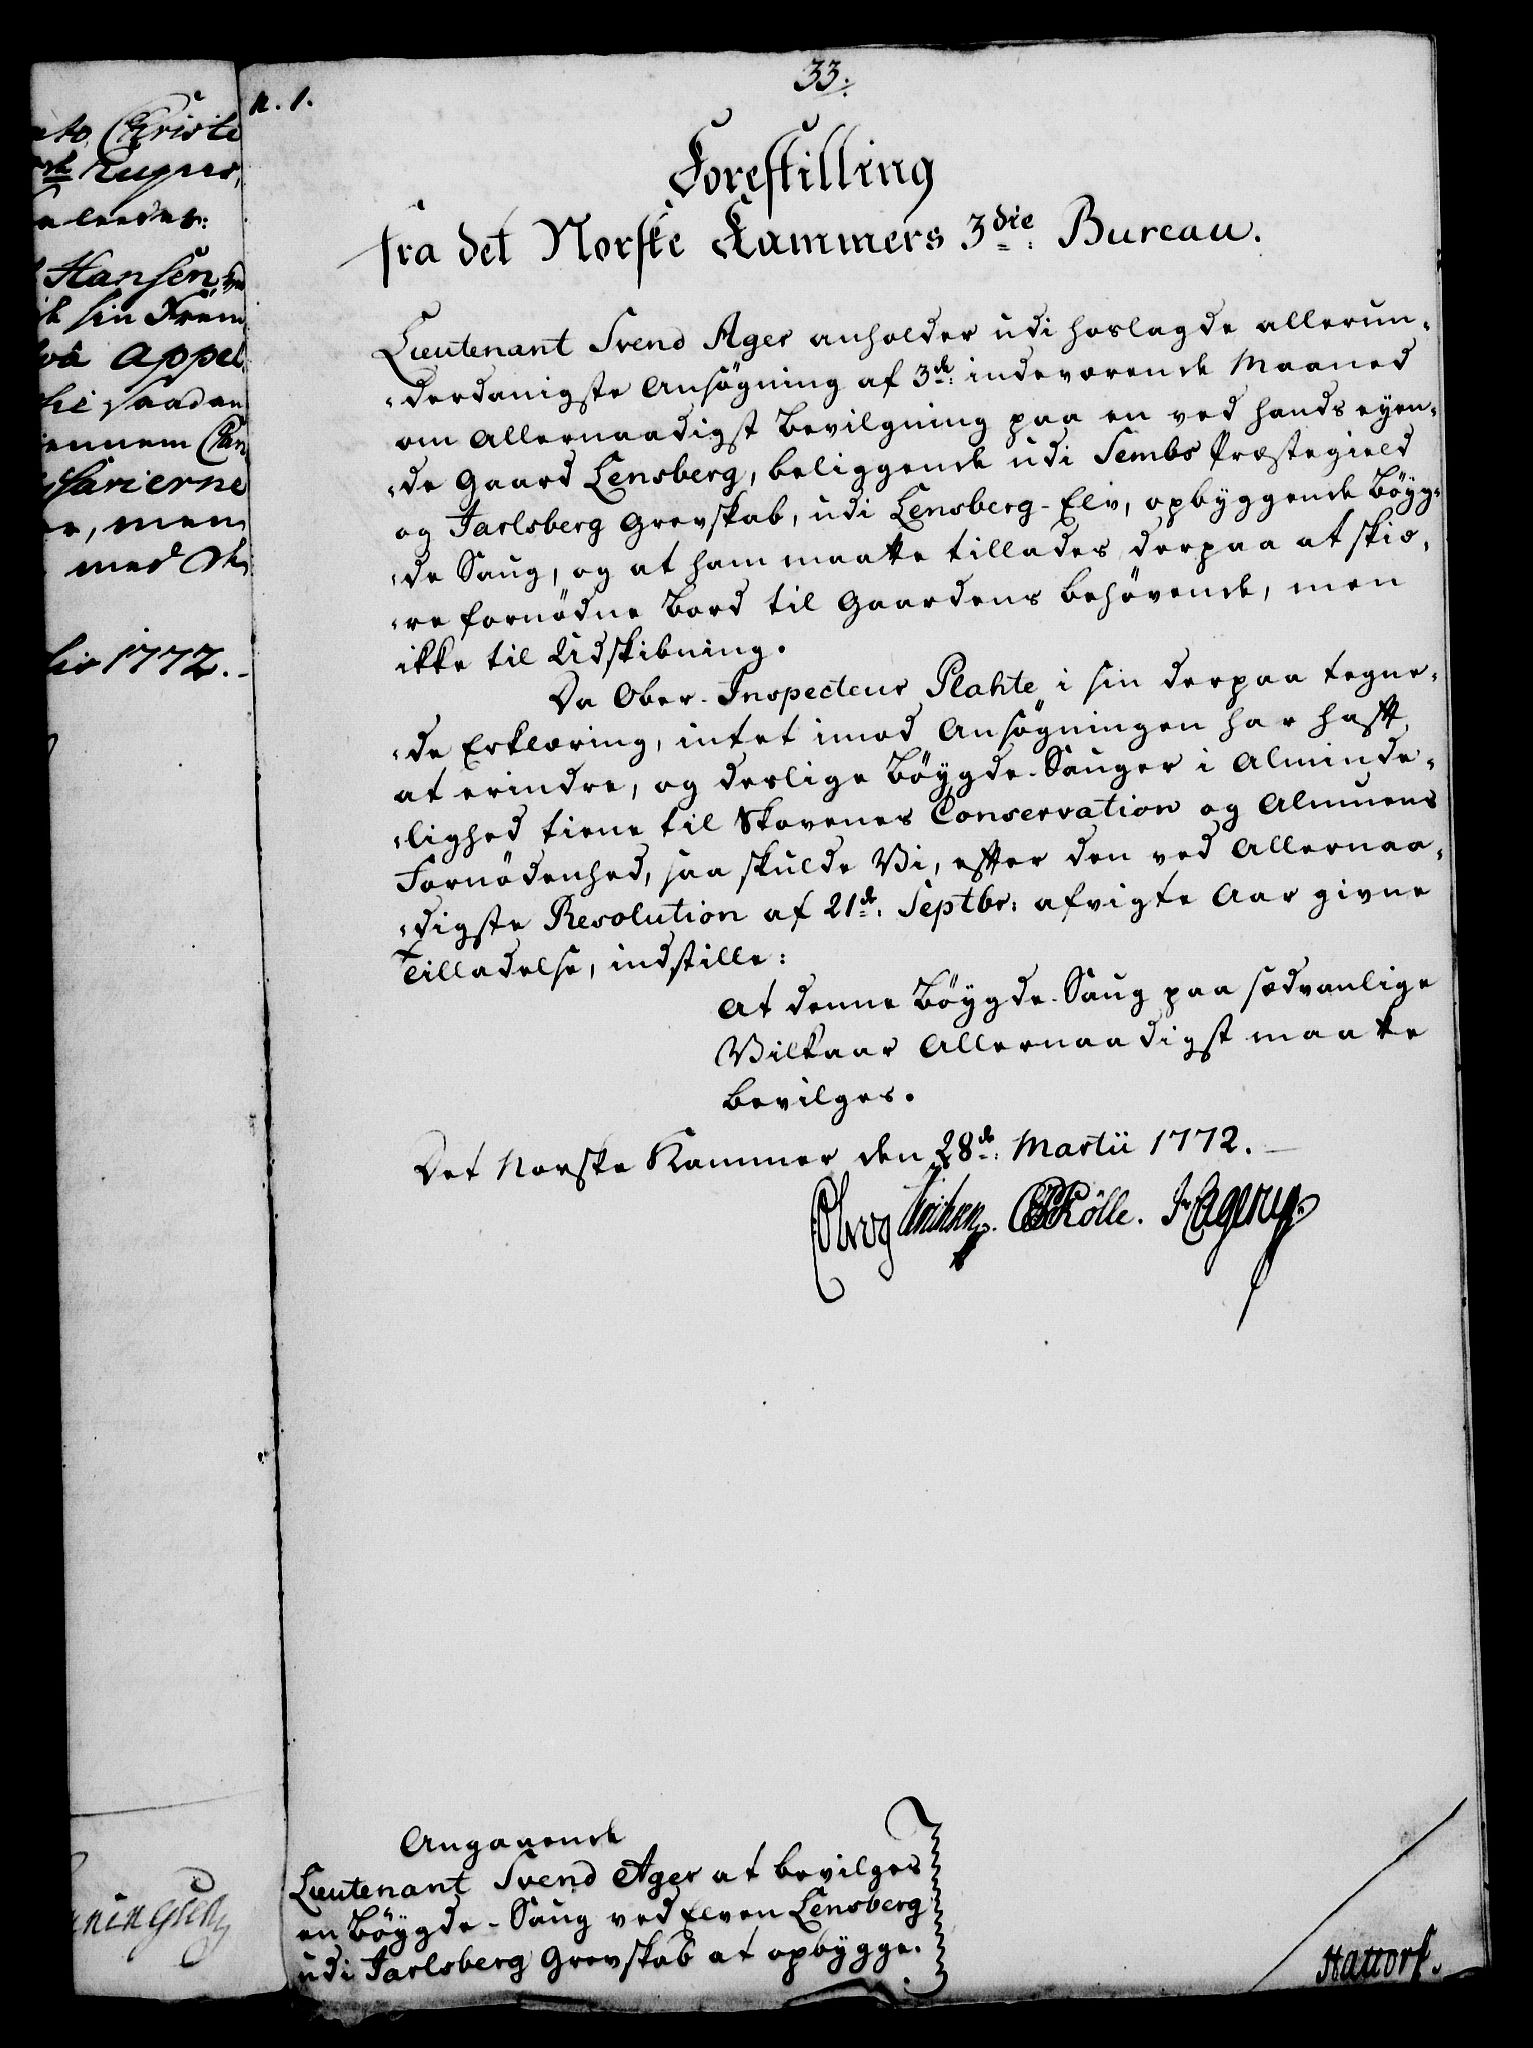 33.
n. 1.
Forestilling
fra det Norske Kammers 3die Bureau.
Lieutenant Svend Ager anholder udi hoslagde allerun-
derdanigste Ansøgning af 3de: indeværende Maaned
om Allernaadigst Bevilgning paa en ved hands eyen-
de Gaard Lensberg, beliggende udi Sembs Præstegield
og Jarlsberg Grevskab, udi Lensberg-Elv, opbyggende Böyg-
de Saug, og at ham maatte tillades derpaa at skiæ-
re fornödne Bord til Gaardens behövende, men
ikke til Udskibning.
Da Ober-Inspecteur Plahte i sin derpaa tegne-
de Erklæring, intet imod Ansögningen har hafft
at erindre, og deslige Böygde-Sauger i Alminde-
lighed tiene til Skovenes Conservation og Almuens
Fornödenhed, saa skulde Vi, effter den ved Allernaa-
digste Resolution af 21de: Septbr: afvigte Aar givne
Tilladelse, indstille:
At denne Böygde-Saug paa sædvanlige
Vilkaar Allernaadigst maatte
bevilges.
Det Norske Kammer den 28de: Martii 1772.
Rölle.
Angaaende
Lieutenant Svend Ager at bevilges
en Böygde-Saug ved Elven Lensberg
udi Jarlsberg Grevskab at opbygge.
Hattorf.
Christe
leedet:
Hansen
sin Frem
appel
saadan
ennem
men
med
1772.